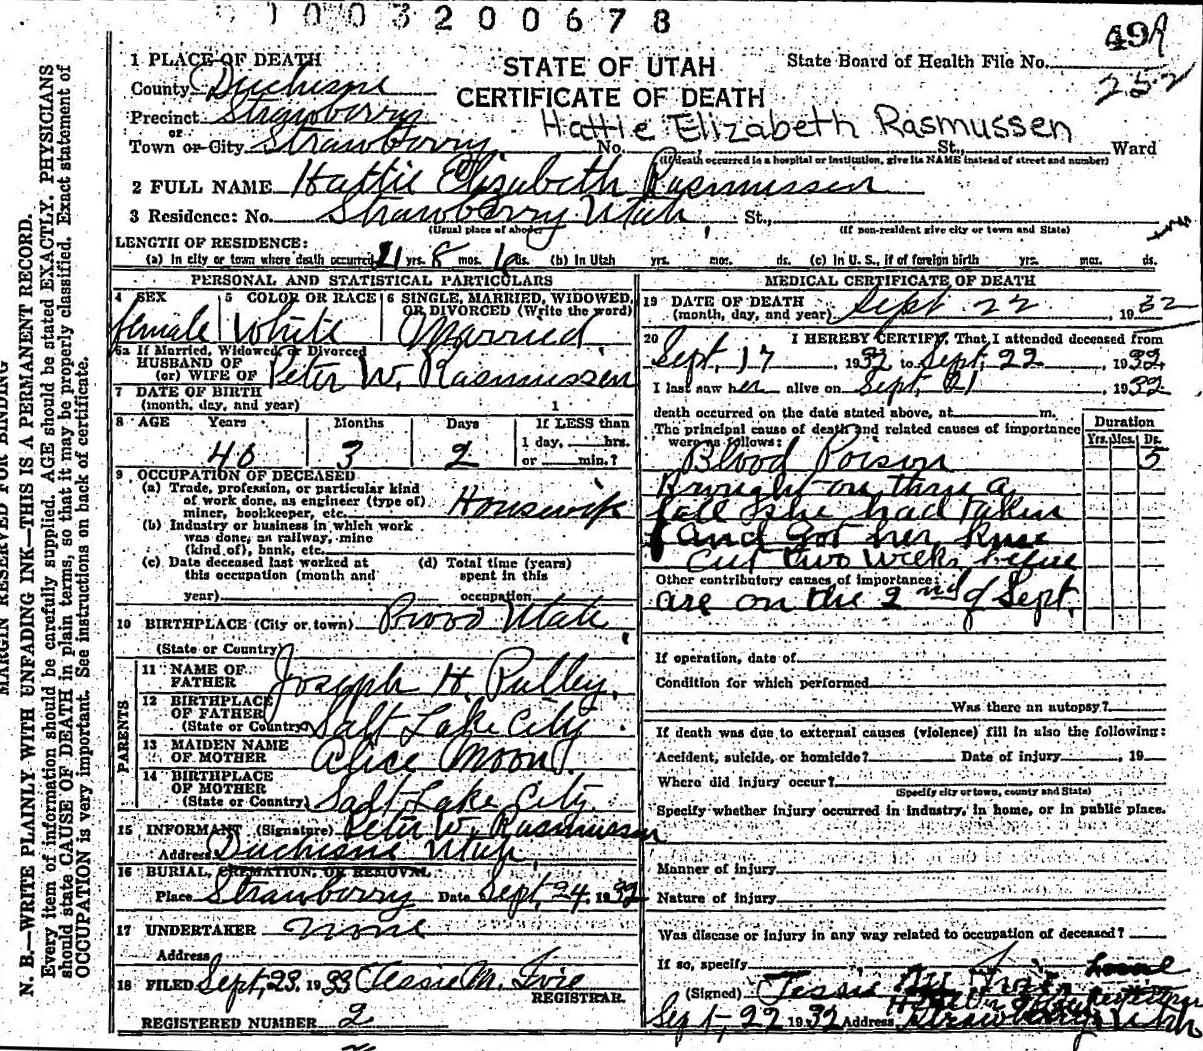 1003200678
49
252
1 PLACE OF DEATH
STATE OF UTAH
State Board of Health File No.
County Duchesne
CERTIFICATE OF DEATH
Precinct Strawberry
Hattie Elizabeth Rasmussen
or
Town or City Strawberry No. St., Ward
(If death occurred in a hospital or institution, give its NAME instead of street and number)
2 FULL NAME Hattie Elizabeth Rasmussen
3 Residence: No. Strawberry Utah St.,
(Usual place of abode) (If non-resident give city or town and State)
LENGTH OF RESIDENCE:
(a) In city or town where death occurred 21 yrs. 8 mos. ds. (b) In Utah yrs. mos. ds. (c) In U. S., if of foreign birth yrs. mos. ds.
PERSONAL AND STATISTICAL PARTICULARS
4 SEX 5 COLOR OR RACE 6 SINGLE, MARRIED, WIDOWED,
OR DIVORCED (Write the word)
female White Married
5a If Married, Widowed or Divorced
HUSBAND OF
(or) WIFE OF Peter W. Rasmussen
7 DATE OF BIRTH
(month, day, and year) 1
8 AGE Years Months Days If LESS than
1 day, hrs.
or min.?
40 3 2
9 OCCUPATION OF DECEASED
(a) Trade, profession, or particular kind
of work done, as engineer (type of)
miner, bookkeeper, etc. Housewife
(b) Industry or business in which work
was done, as railway, mine
(kind of), bank, etc.
(c) Date deceased last worked at
this occupation (month and
year)
(d) Total time (years)
spent in this
occupation
10 BIRTHPLACE (City or town) Provo Utah
(State or Country)
PARENTS
11 NAME OF
FATHER Joseph H. Pulley.
12 BIRTHPLACE
OF FATHER
(State or Country) Salt Lake City
13 MAIDEN NAME
OF MOTHER Alice Moon.
14 BIRTHPLACE
OF MOTHER
(State or Country) Salt Lake City.
15 INFORMANT (Signature) Peter W. Rasmussen
Address Duchesne Utah.
16 BURIAL, CREMATION, OR REMOVAL
Place Strawberry Date Sept. 24, 1932
17 UNDERTAKER None
Address
18 FILED Sept, 23, 1933 Jessie M. Ivie
REGISTRAR.
REGISTERED NUMBER 2
MEDICAL CERTIFICATE OF DEATH
19 DATE OF DEATH
(month, day, and year) Sept 22, 1932
20 I HEREBY CERTIFY, That I attended deceased from
Sept. 17, 1932 to Sept. 22, 1932
I last saw her alive on Sept. 21, 1932
death occurred on the date stated above, at m.
The principal cause of death and related causes of importance
were as follows:
Duration
Yrs. Mos. Ds.
Blood Poison 5
Brought on thru a
fall she had taken
and got her knee
cut two weeks before
Other contributory causes of importance:
are on the 2nd of Sept.
If operation, date of
Condition for which performed
Was there an autopsy?
If death was due to external causes (violence) fill in also the following:
Accident, suicide, or homicide? Date of injury, 19
Where did injury occur?
(Specify city or town, county and State)
Specify whether injury occurred in industry, in home, or in public place.
Manner of injury
Nature of injury
Was disease or injury in any way related to occupation of deceased?
If so, specify
(Signed) Jessie M. Ivie
Sept, 22 1932 Address Strawberry Utah
MARGIN RESERVED FOR BINDING
N. B.—WRITE PLAINLY WITH UNFADING INK—THIS IS A PERMANENT RECORD.
Every item of information should be carefully supplied. AGE should be stated EXACTLY. PHYSICIANS
should state CAUSE OF DEATH in plain terms, so that it may be properly classified. Exact statement of
OCCUPATION is very important. See instructions on back of certificate.